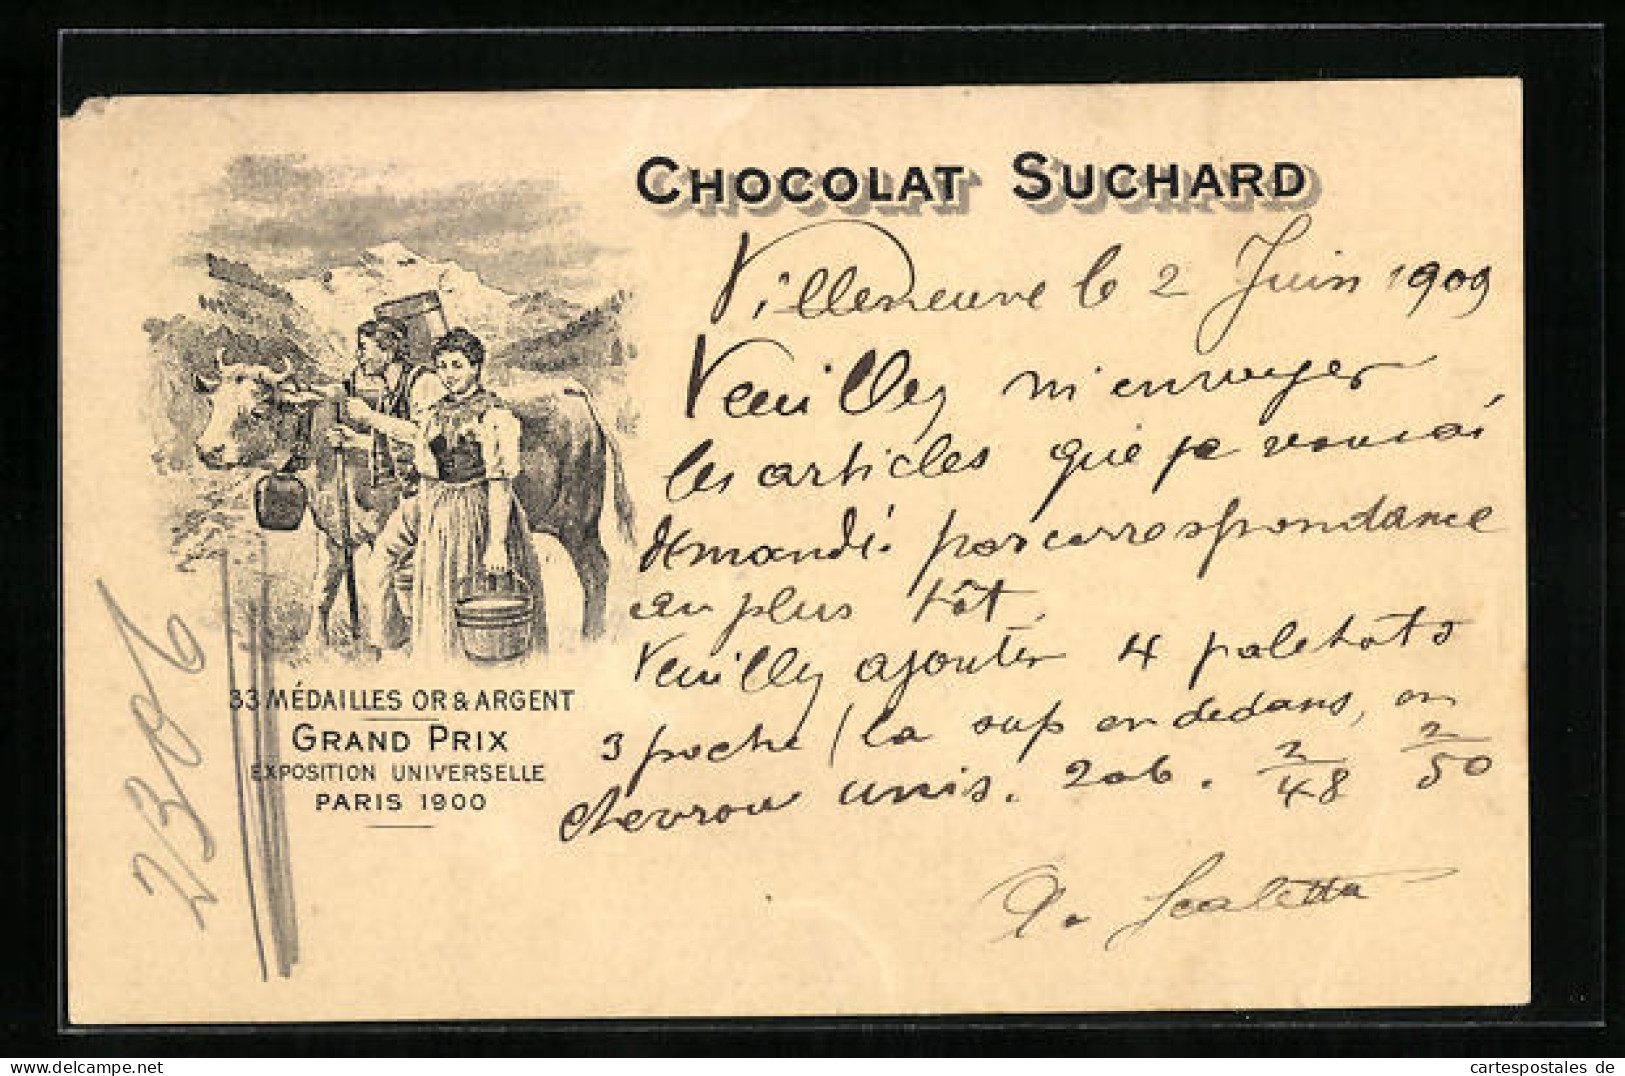 CHOCOLAT SUCHARD
Villeneuve le 2 Juin 1909
Veuilley m'envoyer
les articles que je vous ai
demandé. par correspondance
au plus tôt.
Veuilley ajouter 4 paletots
3 poche (la sup en dedans, en
chevrou unis. 206. 2/48 2/50
Scaletta
2306
33 MÉDAILLES OR & ARGENT
GRAND PRIX
EXPOSITION UNIVERSELLE
PARIS 1900
cartespostales de